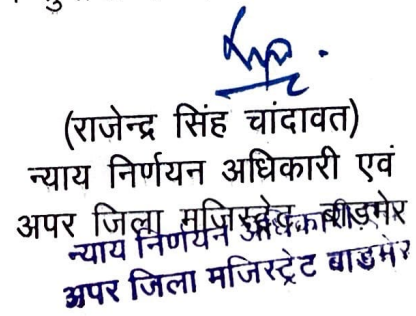 (राजेन्द्र सिंह चांदावत)
न्याय निर्णयन अधिकारी एवं
अपर जिला मजिस्ट्रेट, बाड़मेर
न्याय निर्णयन अधिकारी
अपर जिला मजिस्ट्रेट बाडमेर